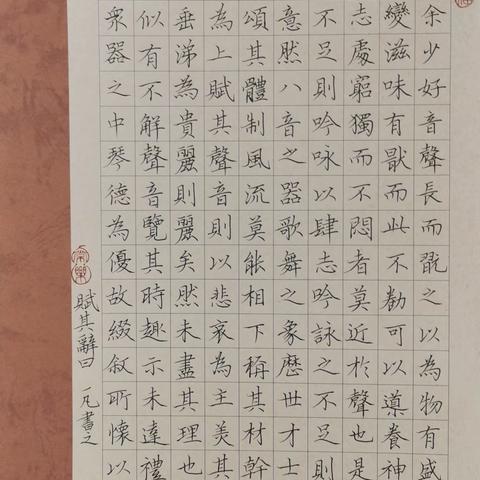 余少好音聲長而翫之以為物有盛
變滋味有猒而此不勌可以導養神
志處窮獨而不悶者莫近於聲也是
不足則吟咏以肆志吟詠之不足則
意然八音之器歌舞之象歷世才士
頌其體制風流莫能相下稱其材幹
為上賦其聲音則以悲哀為主美其
垂涕為貴麗則麗矣然未盡其理也
似有不解聲音覽其時趣示未達禮
衆器之中琴德為優故綴叙所懷以
賦其辭曰 一凡書之